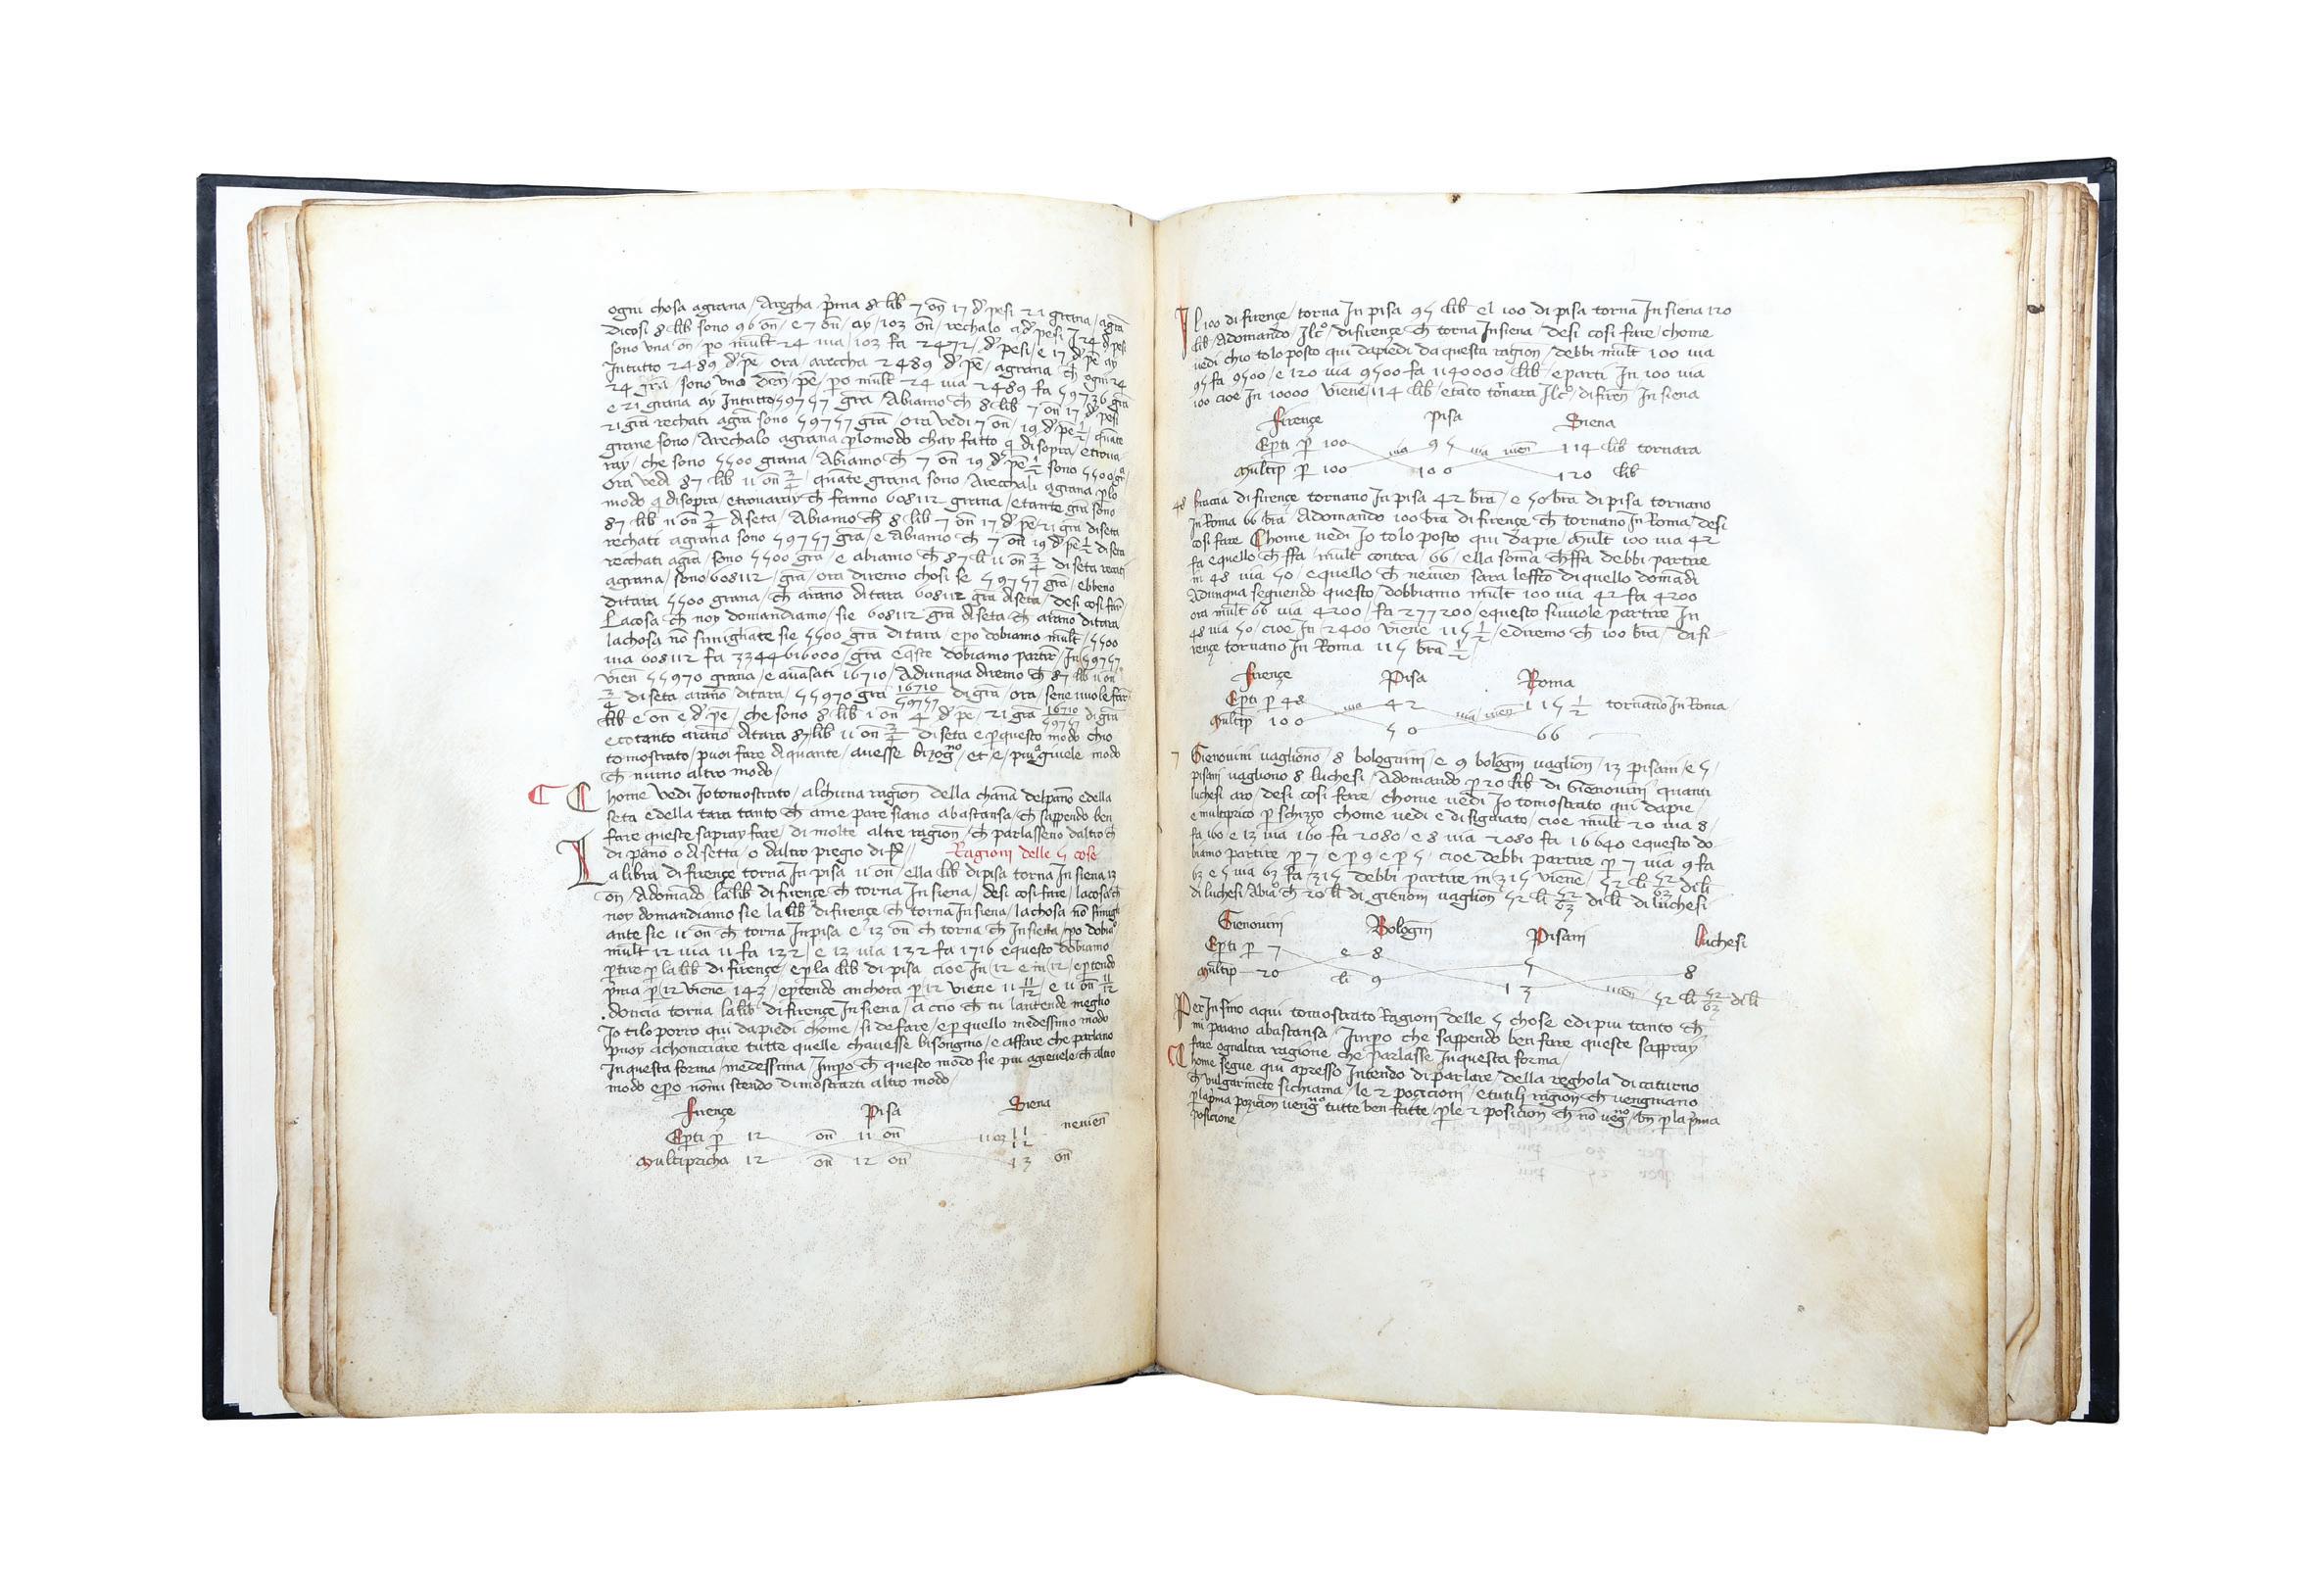 ogni chosa agrana / Aregha p̄ima 8 lib̄ 7 on̄ 17 d̄ pesi 21 grana / agrā
dicosi 8 lib sono 96 on̄ / e 7 on̄ / ay / 103 on̄ / rechalo a d̄ pesi J 24 d̄ pesi
sono una on̄ / po mult̄ 24 uia / 103 fa 2472 / d̄ pesi / e 17 d̄ pē ay
Intutto 2489 d̄ pē ora / areccha 2489 d̄ pē / agrana / ch̄ ogni 24
24 grā / sono uno den̄ / pē / po mult̄ 24 uia 2489 fa 59736 grā
e 21 grana ay Intutto / 59757 grā / Abiamo ch̄ 8 lib 7 on̄ 17 d̄ pesi
21 grā rechati agrā sono 59757 grā / ora vedi 7 on̄ / 19 d̄ pē 1/2 / quāte
grane sono / Arechalo agrana p̄lomodo chay fatto q̄ disopra / etroua
ray / che sono 5500 grana / Abiamo ch̄ 7 on̄ 19 d̄ pē 1/2 sono 5500 grā
ora vedi 87 lib 11 on̄ 3/4 / quāte grana sono / Arecchali agrana p̄lo
modo q̄ disopra / etrouaray ch̄ fanno 608112 grana / etante grā sono
87 lib 11 on̄ 3/4 diseta / Abiamo ch̄ 8 lib 7 on̄ 17 d̄ pē 21 grā diseta
rechati agrana sono 59757 grā / e abiamo ch̄ 7 on̄ 19 d̄ pē 1/2 di seta
recchati agrā / sono 5500 grā / e abiamo ch̄ 87 li 11 on̄ 3/4 di seta recati
agrana / sono 608112 / grā / ora diremo chosi se 59757 grā / ebbeno
ditara 5500 grana / ch̄ arāno ditara 608112 grā diseta / desi cosi fare
Lacosa ch̄ noy domandiamo / sie 608112 grā diseta ch̄ arāno ditara
lachosa nō simigliāte sie 5500 grā ditara / epo dobiamo mult̄ / 5500
uia 608112 fa 3344616000 / grā eq̄ste dobiamo partir̄ / In 59757
vien̄ 55970 grana / e auāsati 16710 / Adunqua diremo ch̄ 87 lib 11 on̄
3/4 di seta arāno ditara / 55970 grā 16710/59757 di grā / ora / sene uuole far̄
lib e on̄ e d̄ pē / che sono 8 lib 1 on̄ 4 d̄ pē / 21 grā 16710/59757 di grā
ecotanto arāno ditara 87 lib 11 on̄ 3/4 di seta e p̄questo modo chio
to mostrato / puoi fare diquante / auesse bizoḡno / et e / piu agiuele modo
ch̄ niuno altro modo /
Chome vedi Jotomostrato / alchuna ragion̄ della chāna delpāno edella
seta edella tara tanto ch̄ ame pare siano abastansa / ch̄ sappendo ben
fare queste sapray fare / di molte altre ragion̄ / ch̄ parlasseno daltro ch̄
di pano o diseta / o daltro pregio di
Ragioni delle 5 cose
La libra di firençe torna In pisa 11 on̄ / ella lib̄ dipisa torna In siena 13
on̄ / Adomādo la lib̄ di firençe ch̄ torna In siena / desi cosi fare / lacosa ch̄
noy domandiamo sie la lib̄ di firençe ch̄ torna In siena / lachosa nō simigli
ante sie 11 on̄ ch̄ torna Inpisa e 13 on̄ ch̄ torna ch̄ Insiena / po dobiāo
mult̄ 12 uia 11 fa 132 / e 13 uia 132 fa 1716 equesto dobiamo
p̄tire p̄ la lib̄ di firençe / ep̄la lib̄ di pisa cioe In 12 e in 12 / ep̄tendo
p̄ima p̄ 12 viene 143 / ep̄tendo anchora p̄ 12 viene 11 11/12 / e 11 on̄ 11/12
doncia torna la lib̄ di firençe In siena / A ccio ch̄ tu lantende meglio
Jo tilo porro qui dapiedi chome / si de fare / e p̄ quello medessimo modo
puoy achonciare tutte quelle chauesse bisongnio / e affare che parlano
In questa forma / medessima / Imp̄o ch̄ questo modo sie piu agieuele ch̄ altro
modo ep̄o nōmi stendo dimostrarti altro modo /
firençe pisa Siena
Ep̄ti p̄ 12 on̄ 11 on̄ 11 oz 11/12 neuien̄
Multipricha 12 on̄ 12 on̄ 13 on̄
Il 100 di firençe / torna In pisa 95 lib̄ el 100 di pisa torna In siena 120
lib̄ / Adomando / Jlc̊ / difirençe ch̄ torna Insiena / desi cosi fare / chome
uedi chio tolo posto qui dapiedi da questa ragion̄ / debbi mult̄ 100 uia
95 fa 9500 / e 120 uia 9500 fa 1140000 lib̄ / eparti In 100 uia
100 cioe In 10000 viene 114 lib̄ / etāto tōrnara Jlc̊ / difiren̄ In siena
firençe pisa Siena
Ep̄ti p̄ 100 uia 95 uia uien̄ 114 lib̄ tornara
Multip̄ p̄ 100 100 120 lib̄
48 braccia di firençe tornano In pisa 42 brā / e 50 brā di pisa tornano
In Roma 66 brā / Adomando 100 brā di firençe ch̄ tornano In Roma / desi
cosi fare Chome uedi Jo tolo posto qui da pie / Mult̄ 100 uia 42
fa equello ch̄ ffa / mult̄ contra / 66 / ella soma ch̄ffa debbi partire
in 48 uia 50 / equello ch̄ neuien̄ sara leffētto di quello domādi
Adunqua seguendo questo / dobbiamo mult̄ 100 uia 42 fa 4200
ora mult̄ 66 uia 4200 / fa 277200 / equesto siuuole partire In
48 uia 50 / cioe In 2400 viene 115 1/2 / ediremo ch̄ 100 brā / di fi=
rençe tornano In Roma 115 brā 1/2 /
firençe Pisa Roma
Ep̄ti p̄ 48 uia 42 uia / uien̄ 115 1/2 tornano In Roma
Multip̄ 100 50 66
7 Gienouini uagliono / 8 bolognini / e 9 bologn̄i uaglion̄ / 13 pisani / e 5 /
pisani uagliono 8 luchesi / Adomando p̄ 20 lib̄ di Gienouini quanti
luchesi aro / desi cosi fare / chome uedi Jo tomostrato qui dapie /
e multiprico p̄ schizzo chome uedi e disignato / cioe mult̄ 20 uia 8 /
fa 160 e 13 uia 160 fa 2080 / e 8 uia 2080 fa 16640 equesto do-
biamo partire p̄ 7 e p̄ 9 e p̄ 5 / cioe debbi partire p̄ 7 uia 9 fa
63 e 5 uia 63 fa 315 debbi partire in 315 viene / 52 li 52/63 di li
di luchesi / Abiāo ch̄ 20 li di gienoni uaglion̄ 52 li 52/63 di li di luchesi
Gienouini Bologn̄i Pisani luchesi
Ep̄ti p̄ 7 e 8 5 8
Multip̄ 20 li 9 13 uien̄ 52 li 52/63 di li
Per Insino aqui tomostrato Ragioni delle 5 chose edipiu tanto ch̄
mi paiano abastansa / Imp̄o che sappendo ben fare queste sappray
fare ognaltra ragione che parlasse Inquesta forma /
Chome segue qui apresso Intendo di parlare / della reghola dicaturno
ch̄ uulgarmēte sichiama / le 2 posicioni / etutili ragion̄ ch̄ uengniano
p̄lap̄ima pozicion̄ uengno tutte ben fatte / p̄le 2 posicion̄ ch̄ nō uegno / bn̄ p̄ la p̄ima
posicione